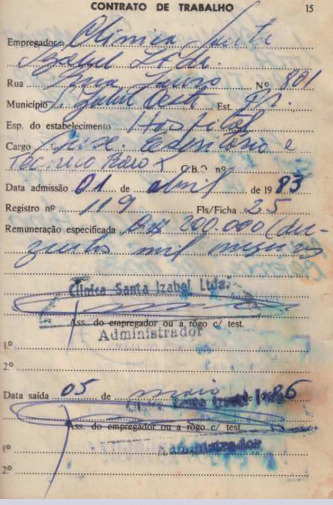 CONTRATO DE TRABALHO 15
Empregador Clínica Santa
Izabel Ltda.
Rua Nº 891
Município Est.
Esp. do estabelecimento Hospital
Cargo Aux. Escritório e
Técnico Raio X C.B.O. nº
Data admissão 01 de abril de 1983
Registro nº 119 Fls/Ficha 25
Remuneração especificada 200.000 (du-
zentos mil cruzeiros
Clínica Santa Izabel Ltda.
Ass. do empregador ou a rôgo c/ test.
Administrador
1º
2º
Data saída 05 de maio de 1986
Ass. do empregador ou a rôgo c/ test.
Administrador
1º
2º